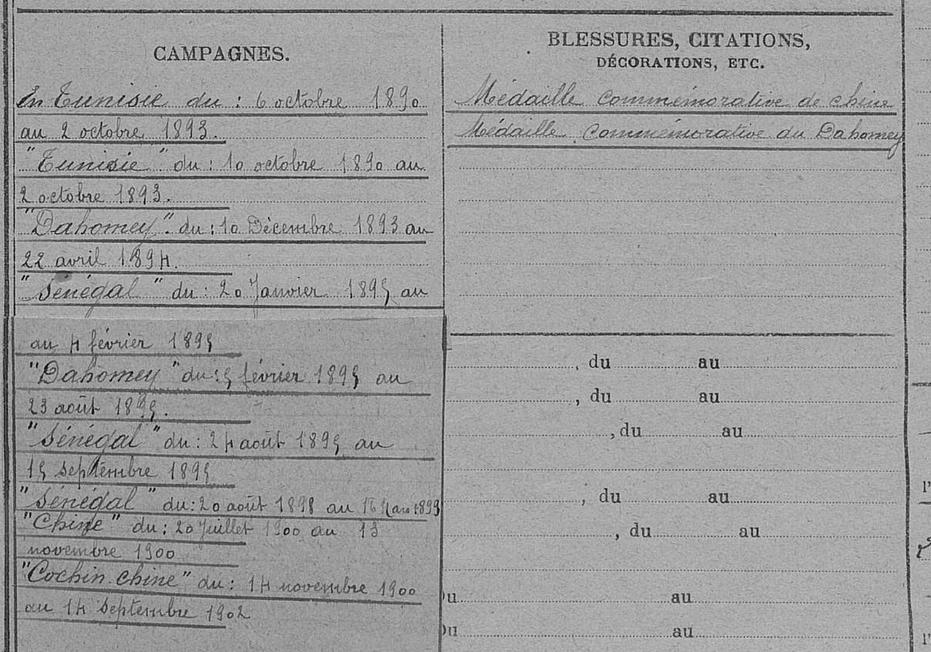 CAMPAGNES.
En Tunisie du : 6 octobre 1890
au 2 octobre 1893.
"Tunisie" du : 10 octobre 1890 au
2 octobre 1893.
"Dahomey" du : 10 Décembre 1893 au
22 avril 1894.
"Sénégal" du : 20 Janvier 1895 au
au 4 février 1895
"Dahomey" du : 5 février 1895 au
23 août 1895.
"Sénégal" du : 24 août 1895 au
15 septembre 1895
"Sénégal" du : 20 août 1898 au 1899
"Chine" du : 20 Juillet 1900 au 13
novembre 1900
"Cochin chine" du : 14 novembre 1900
au 14 septembre 1902
BLESSURES, CITATIONS,
DÉCORATIONS, ETC.
Médaille commémorative de chine
Médaille commémorative du Dahomey
, du au
, du au
, du au
, du au
, du au
au
au